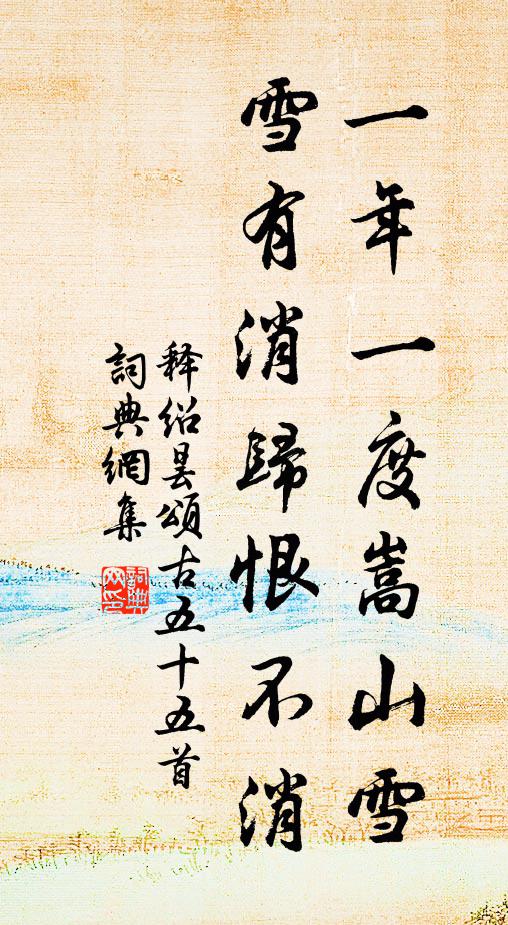 一年一度嵩山雪
雪有消歸恨不消
释绍昙頌古五十五首
詞典網集